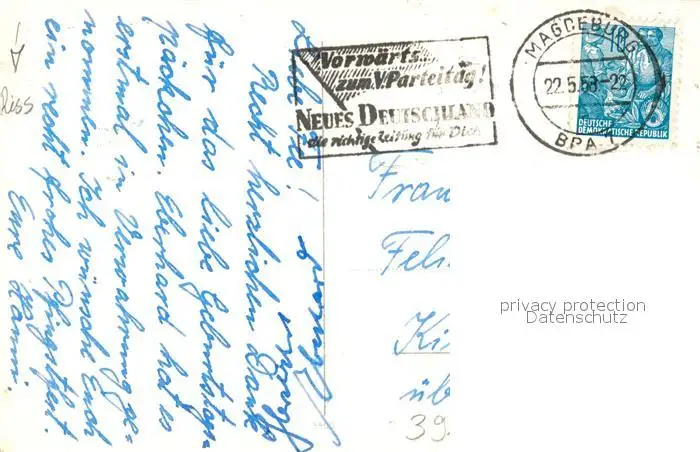 Recht herzlichen Dank
für das liebe Geburtstags=
päckchen. Eberhard hat es
erstmal in Verwahrung ge=
nommen. Ich wünsche Euch
ein recht frohes Pfingstfest.
Eure
Riss
Vorwärts...
zum V. Parteitag!
NEUES DEUTSCHLAND
die richtige Zeitung für Dich
MAGDEBURG
22.5.58-22
BPA 1
10
DEUTSCHE
DEMOKRATISCHE REPUBLIK
Frau
Feh
Ki
üb
39
privacy protection
Datenschutz